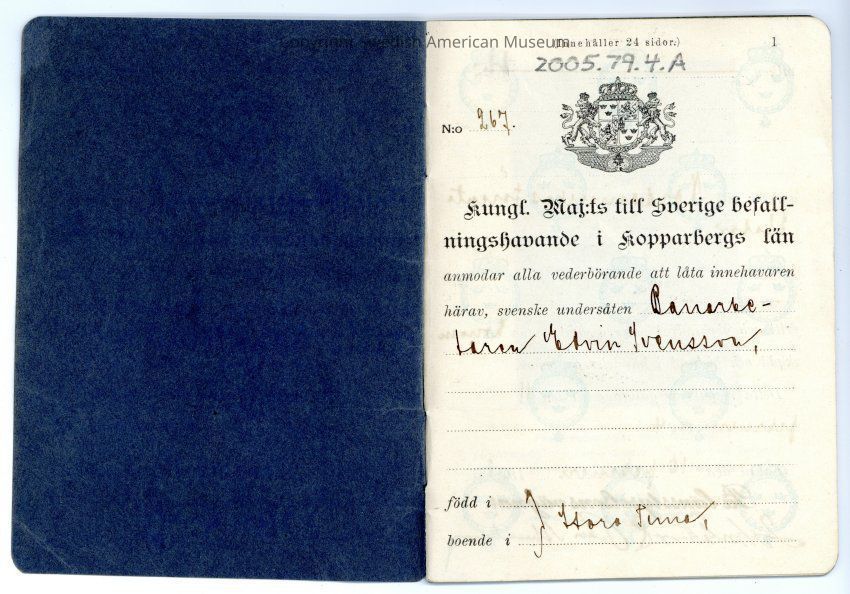 Copyright Swedish American Museum
(Innehåller 24 sidor.)
1
2005.79.4.A
N:o 267.
Kungl. Maj:ts till Sverige befall-
ningshavande i Kopparbergs län
anmodar alla vederbörande att låta innehavaren
härav, svenske undersåten Banarbe-
taren Edvin Svensson,
född i
Stora Tuna,
boende i